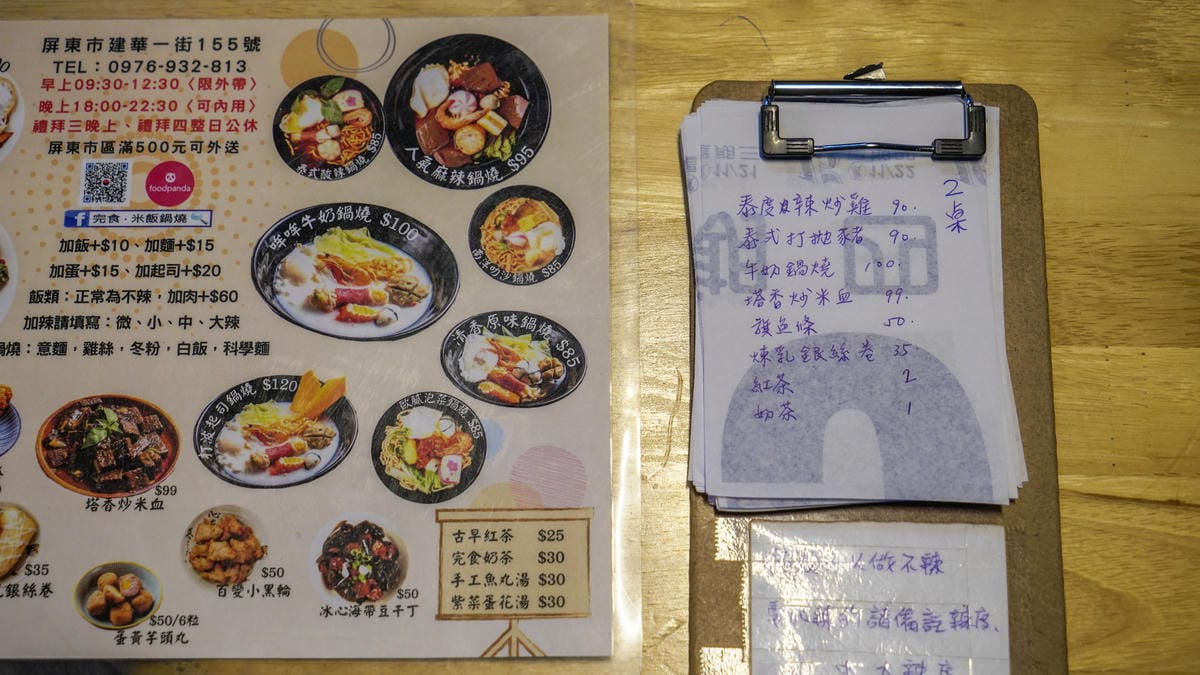 屏東市建華一街155號
TEL：0976-932-813
早上09:30-12:30〈限外帶〉
晚上18:00-22:30〈可內用〉
禮拜三晚上、禮拜四整日公休
屏東市區滿500元可外送
foodpanda
完食·米飯鍋燒
加飯+$10、加麵+$15
加蛋+$15、加起司+$20
飯類：正常為不辣，加肉+$60
加辣請填寫：微、小、中、大辣
鍋燒：意麵，雞絲，冬粉，白飯，科學麵
泰式酸辣鍋燒 $85
人氣麻辣鍋燒 $95
哞哞牛奶鍋燒 $100
南洋叻沙鍋燒 $85
清香原味鍋燒 $85
打波起司鍋燒 $120
歐膩泡菜鍋燒 $85
$99
塔香炒米血
$35
銀絲卷
$50/6粒
蛋黃芋頭丸
$50
百變小黑輪
$50
冰心海帶豆干丁
古早紅茶 $25
完食奶茶 $30
手工魚丸湯 $30
紫菜蛋花湯 $30
2桌
泰度酸辣炒雞 90.
泰式打拋豬 90.
牛奶鍋燒 100.
塔香炒米血 99.
旗魚條 50.
煉乳銀絲卷 35
紅茶 2
奶茶 1
做不辣
請備註辣度.